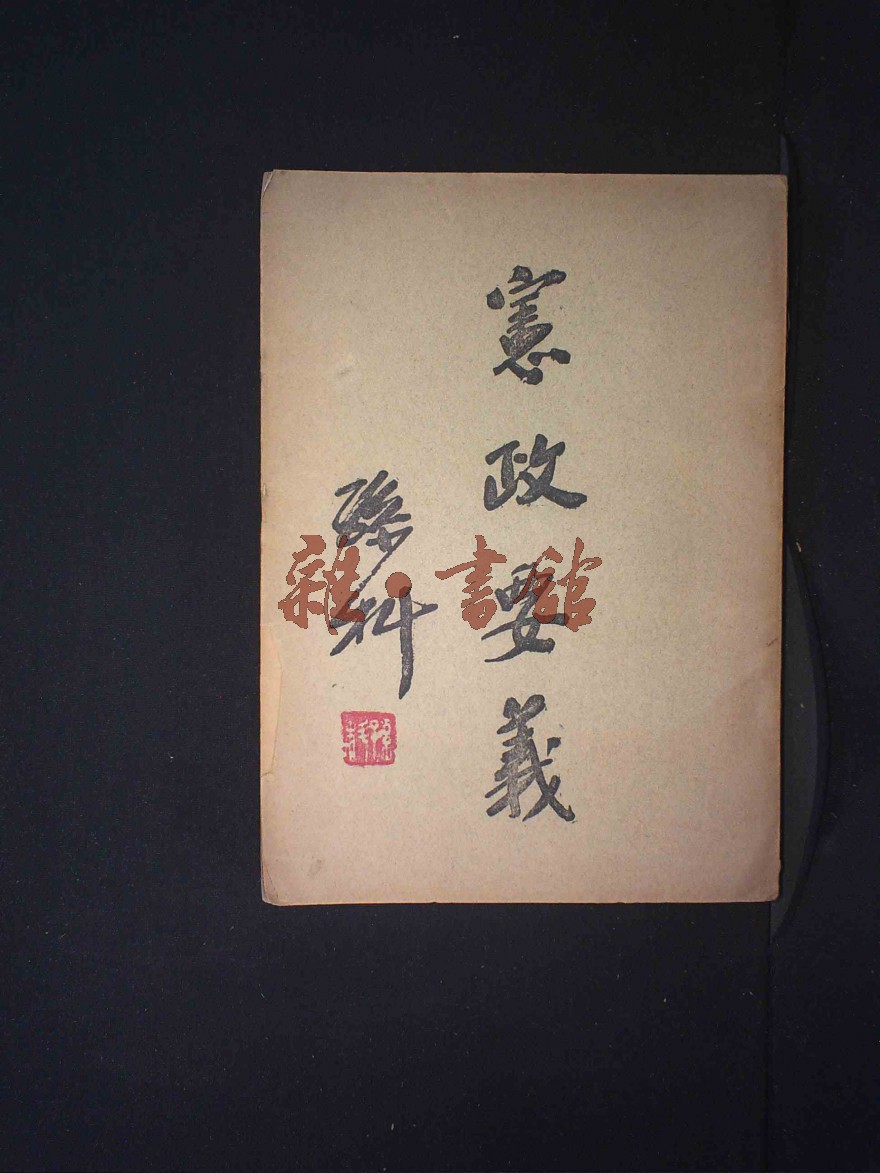 憲政要義
孫科
雜·書館